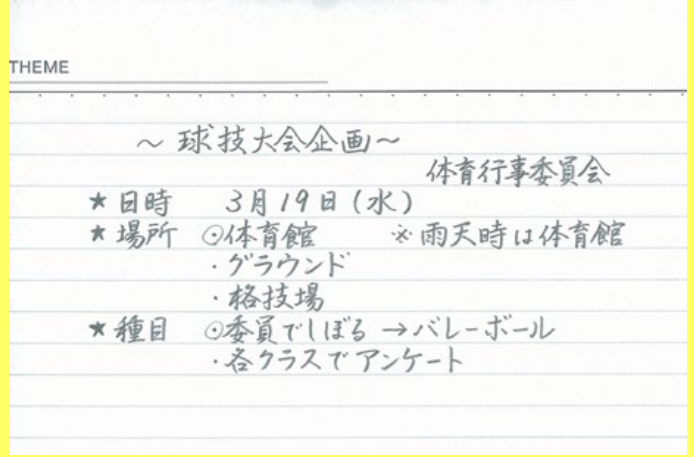 THEME
～球技大会企画～
体育行事委員会
★日時 3月19日(水)
★場所 ⊙体育館 ※雨天時は体育館
・グラウンド
・格技場
★種目 ⊙委員でしぼる→バレーボール
・各クラスでアンケート